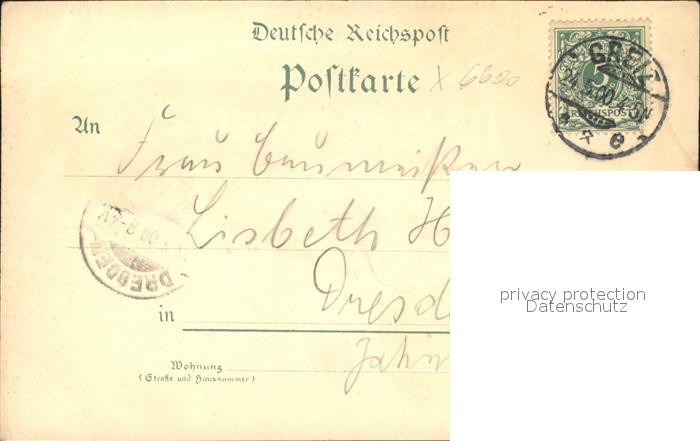 Deutsche Reichspost
Postkarte X 6600
GREIZ
5
REICHSPOST
An Frau Baumeister
Lisbeth H
DRESDEN
in Dresd
Wohnung
(Straße und Hausnummer)
Jahn
privacy protection
Datenschutz